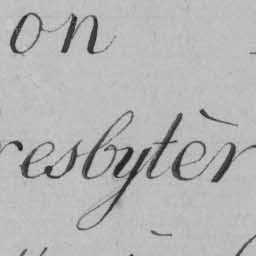 on
resbytèr